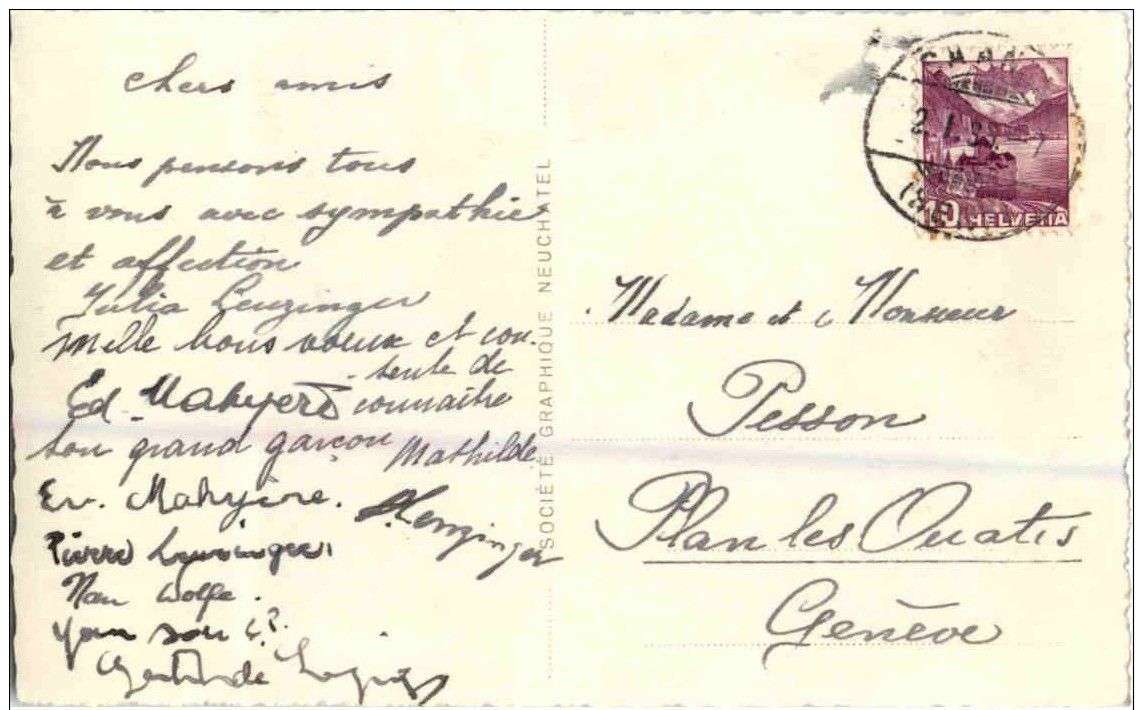 chers amis
Nous pensons tous
à vous avec sympathie
et affection
Julia Leuzinger
Mille bons voeux et con-
-tente de
Ed. Mahyère connaitre
son grand garçon Mathilde
Ev. Mahyère. Leuzinger
Pierre Leuzinger
Nan Wolfe.
Gertrude
SOCIÉTÉ GRAPHIQUE NEUCHATEL
10 HELVETIA
Madame et Monsieur
Pesson
Plan les Ouates
Genève